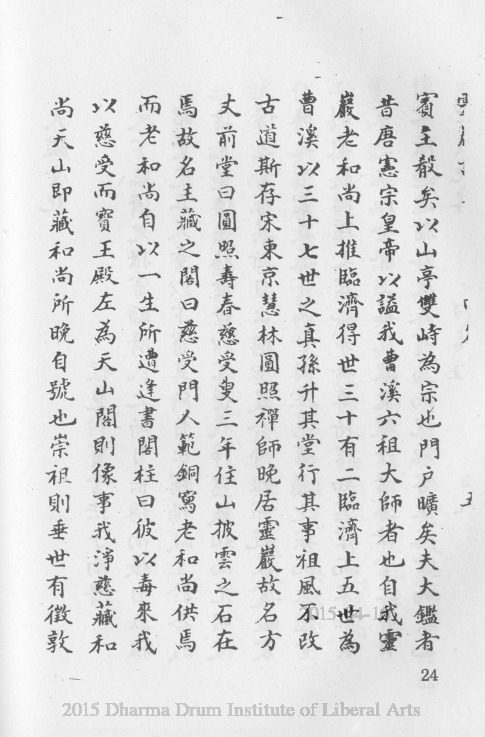 賓主殽矣以山亭雙峙為宗也門戶曠矣夫大鑑者
昔唐憲宗皇帝以謚我曹溪六祖大師者也自我靈
巖老和尚上推臨濟得世三十有二臨濟上五世為
曹溪以三十七世之真孫升其堂行其事祖風不改
古道斯存宋東京慧林圓照禪師晚居靈巖故名方
丈前堂曰圓照壽春慈受叟三年住山披雲之石在
焉故名主藏之閣曰慈受門人範銅寫老和尚供焉
而老和尚自以一生所遭逢書閣柱曰彼以毒來我
以慈受而寶王殿左為天山閣則像事我淨慈藏和
尚天山即藏和尚所晚自號也崇祖則垂世有徵敦
五
2015-04-1
24
2015 Dharma Drum Institute of Liberal Arts